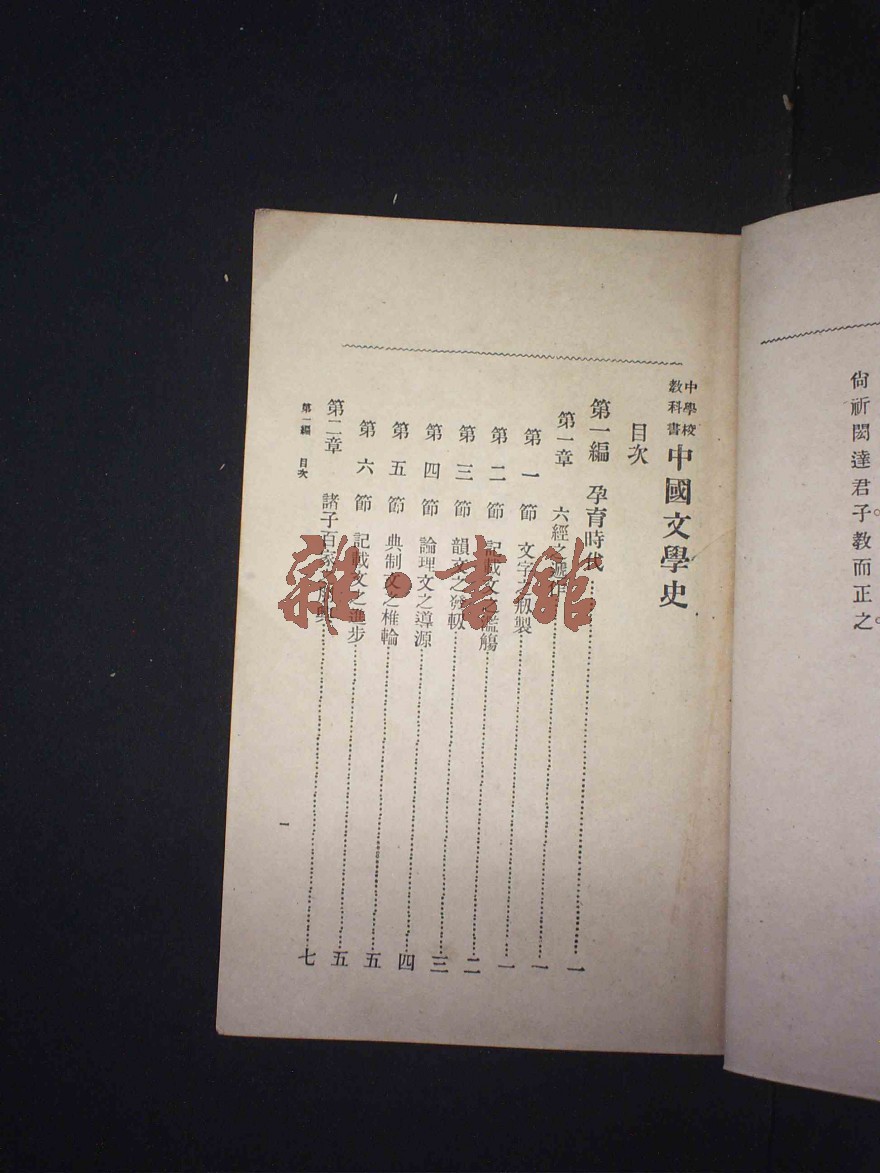 尙祈閎達君子教而正之。
中學校教科書 中國文學史
目次
第一編 孕育時代……一
第一章 六經之遞作……一
第一節 文字之刱製……一
第二節 記載文之濫觴……二
第三節 韻文之發軔……三
第四節 論理文之導源……四
第五節 典制文之椎輪……五
第六節 記載文之進步……五
第二章 諸子百家之朋興……七
第一編 目次
一
雜·書館